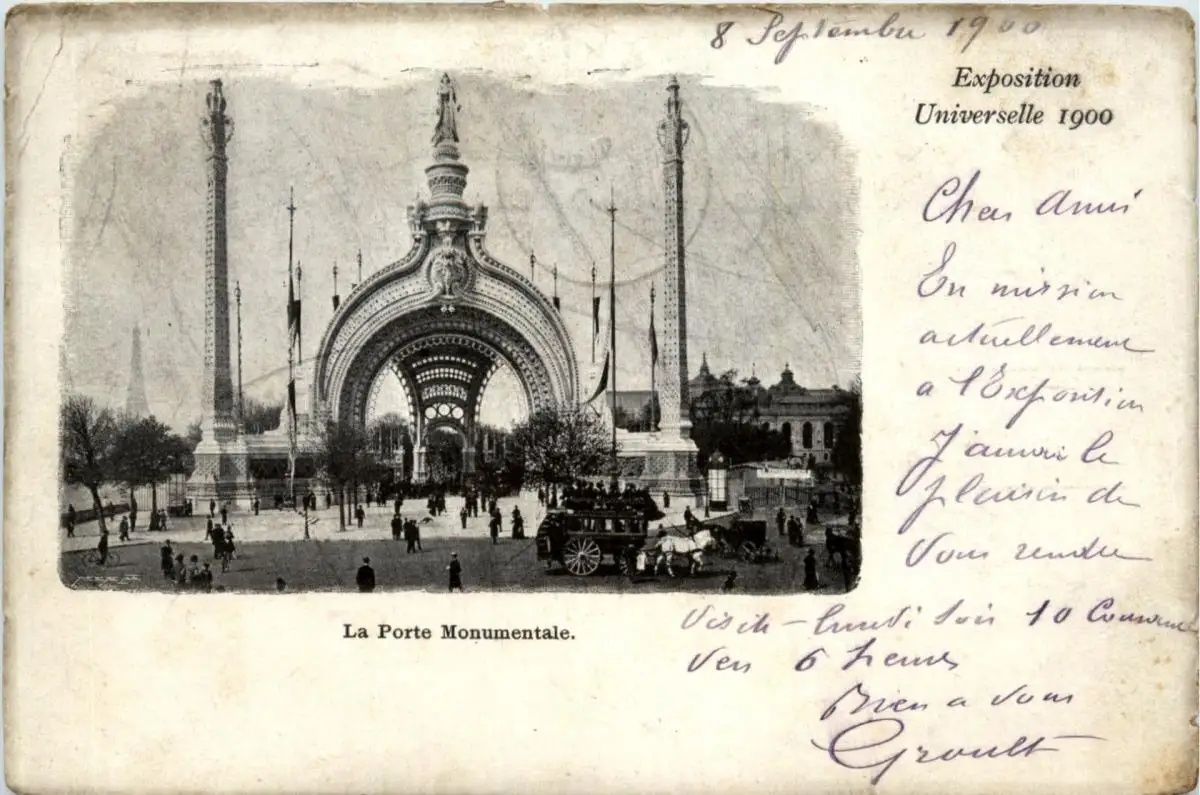 8 Septembre 1900
Exposition
Universelle 1900
Cher Ami
En mission
actuellement
a l'Exposition
J'aurai le
plaisir de
Vous rendre
Visite - lundi soir 10 Courant
Vers 6 heures
Bien a vous
Groult
La Porte Monumentale.